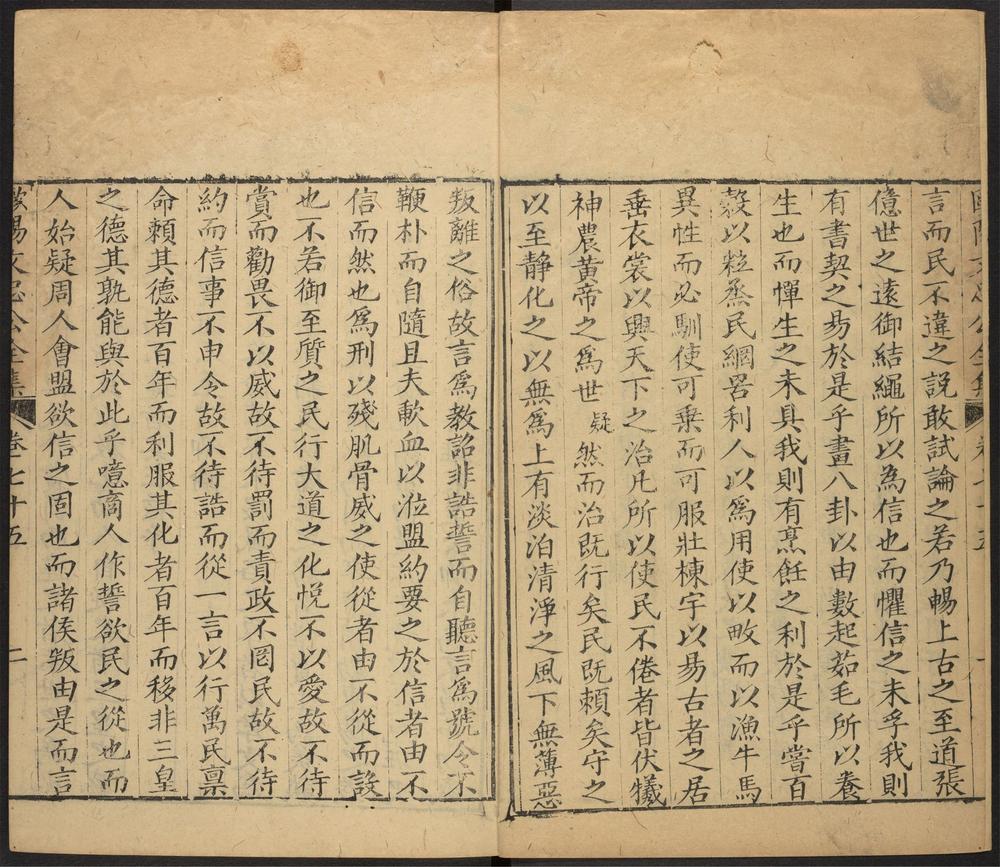 歐陽文忠公全集 卷七十五 一
言而民不違之說敢試論之若乃暢上古之至道張
億世之遠御結繩所以為信也而懼信之未孚我則
有書契之易於是乎畫八卦以由數起茹毛所以養
生也而憚生之未具我則有烹飪之利於是乎嘗百
穀以粒烝民網罟利人以爲用使以畋而以漁牛馬
異性而必馴使可乗而可服壯棟宇以易古者之居
垂衣裳以興天下之治凡所以使民不倦者皆伏犧
神農黃帝之爲世疑然而治既行矣民既賴矣守之
以至静化之以無爲上有淡泊清淨之風下無薄惡
叛離之俗故言爲教詔非誥誓而自聽言爲號令不
鞭朴而自隨且夫歃血以涖盟約要之於信者由不
信而然也爲刑以殘肌骨威之使從者由不從而設
也不若御至質之民行大道之化悅不以愛故不待
賞而勸畏不以威故不待罰而責政不罔民故不待
約而信事不申令故不待誥而從一言以行萬民稟
命賴其德者百年而利服其化者百年而移非三皇
之德其孰能與於此乎噫商人作誓欲民之從也而
人始疑周人會盟欲信之固也而諸侯叛由是而言
歐陽文忠公全集 卷七十五 二